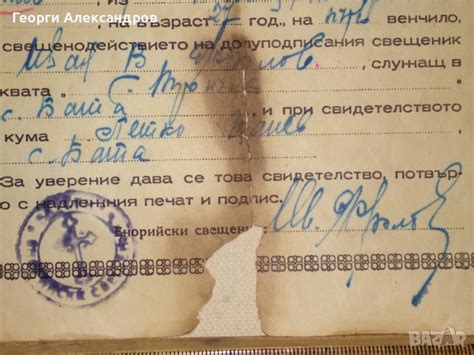 Георги Александров
из
, на възраст 27 год., на първо венчило,
свещенодействието на долуподписания свещеник
Иван В. Фърлов, служащ в
квата "
с. Бата, и при свидетелството
кума Петко Канев
с. Бата
За уверение дава се това свидетелство, потвър-
о с надлежния печат и подпис.
Енорийски свещеник: Ив. Фърлов
BAZAR